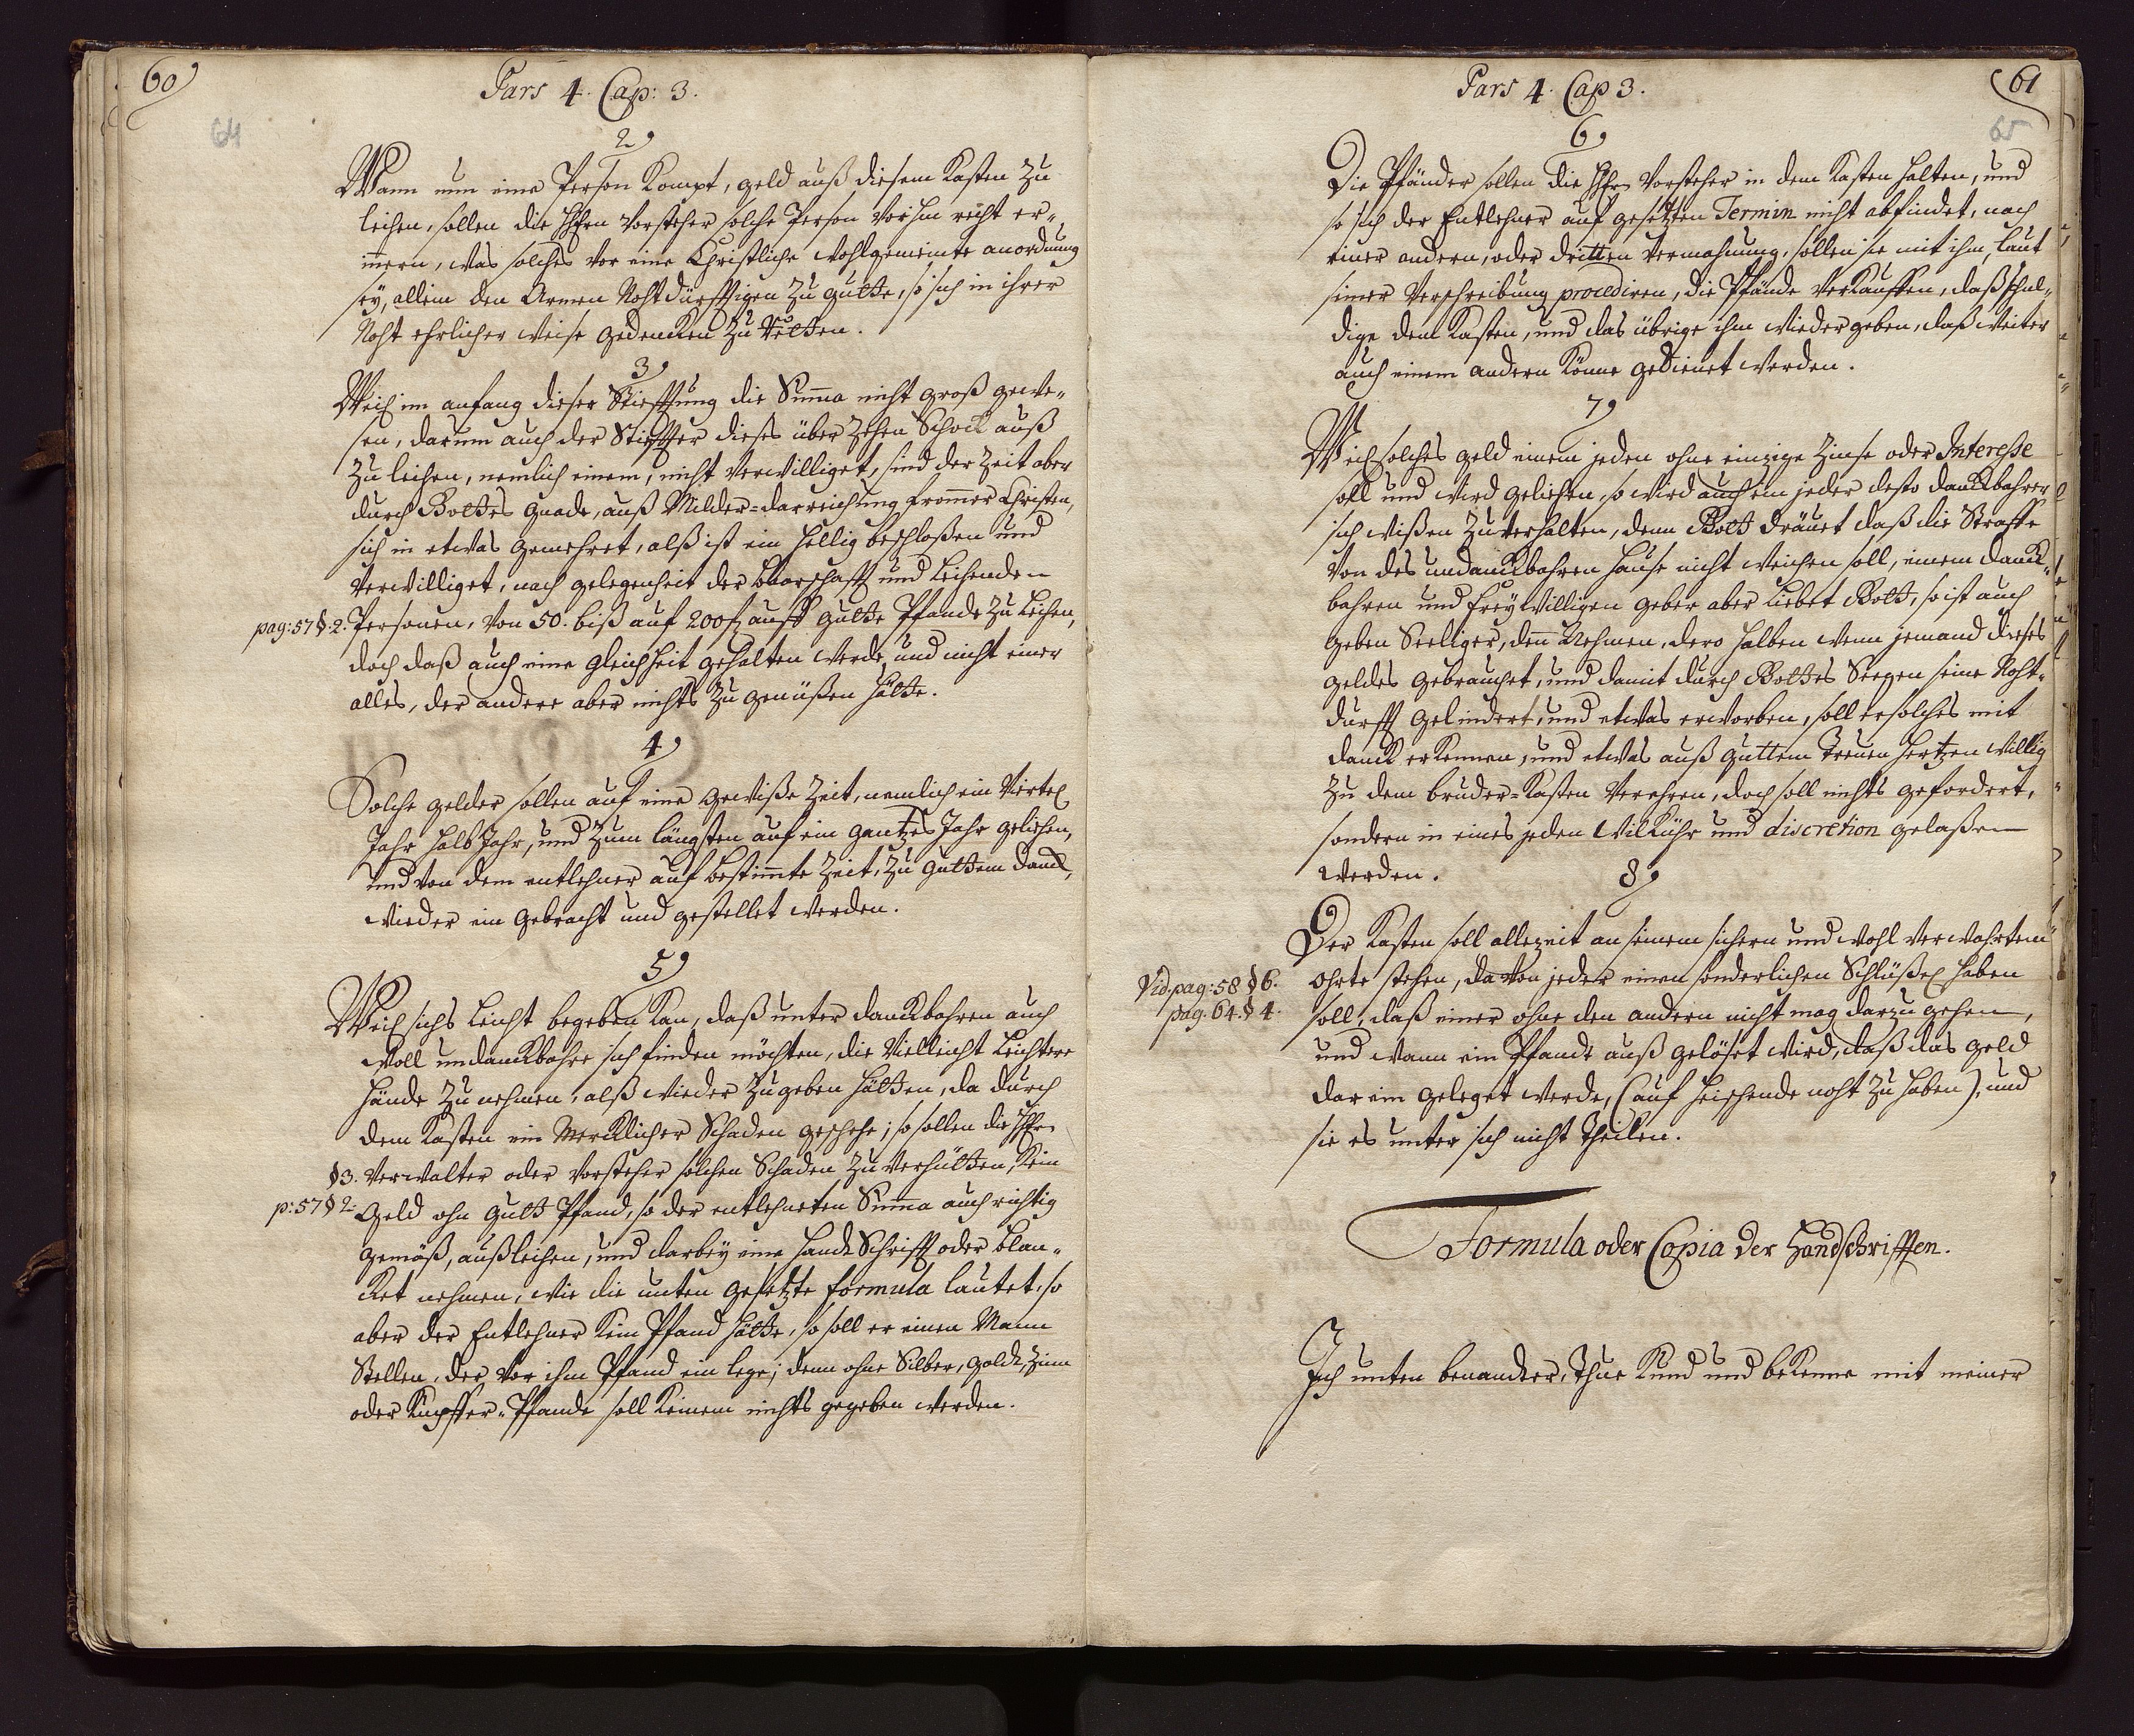 60
Pars 4. Cap: 3.
64
2
Wann nun eine Person kompt, geld auß diesem Kasten zu
leihen, sollen die HHrn Vorsteher solche Person vorhin recht er¬
innern, was solches vor eine Christliche wohlgemeinte anordnung
sey, allein den Armen Nohtdürfftigen zu gutte, so sich in ihrer
Noht ehrlicher weise gedencken zu retten.
3
Weil im anfang dieser Stifftung die Summa nicht groß gewe¬
sen, darum auch der Stiffter dieses über zehen Schock auß
zu leihen, nemlich einem, nicht verwilliget, sind der Zeit aber
durch Gottes gnade, auß Milder-darreichung frommer Christen,
sich in etwas gemehret, alß ist ein hellig beschloßen und
verwilliget, nach gelegenheit der baarschafft und Leihenden
pag: 57 §. 2. Personen, von 50. biß auf 200 f auff gutte Pfande zu leihen,
doch daß auch eine gleichheit gehalten werde, und nicht einer
alles, der andere aber nichts zu genüßen hätte.
4
Solche gelder sollen auf eine gewiße Zeit, nemlich ein Viertel
Jahr halb Jahr, und zum längsten auf ein gantzes Jahr geliehen,
und von dem entlehner auf bestimmte Zeit, zu guttem danck,
wieder ein gebracht und gestellet werden.
5
Weil sichs leicht begeben kan, daß unter danckbahren auch
woll undanckbahre sich finden möchten, die vielleicht leichtere
hände zu nehmen, alß wieder zugeben hätten, da durch
dem Kasten ein mercklicher Schaden geschehe; so sollen die HHrn
§ 3. Verwalter oder Vorsteher solchen Schaden zu verhütten, kein
p: 57 § 2. Geld ohn gutt Pfand, so der entlehneten Summa auch richtig
gemäß, außleihen, und darbey eine handt Schrifft oder blan¬
ket nehmen, wie die unten gesetzte formula lautet, so
aber der Entlehner kein Pfand hätte, so soll er einen Mann
Stellen, der vor ihm Pfand ein lege; denn ohne Silber, goldt, Zinn
oder Kupffer-Pfande soll keinem nichts gegeben werden.
61
Pars 4. Cap 3.
65
6
Die Pfänder sollen die HHrn Vorsteher in dem Kasten halten, und
so sich der Entlehner auf gesetzten Termin nicht abfindet, nach
einer andern, oder dritten vermahnung, sollen sie mit ihm, laut
seiner Verschreibung procediren, die Pfände verkauffen, daß schul¬
dige dem Kasten, und das übrige ihm wieder geben, daß weiter
auch einem andern könne gedienet werden.
7
Weil solches geld einem jeden ohne einzige Zinse oder Interesse
soll und wird geliehen, so wird auch ein jeder desto danckbahrer
sich wißen zu verhalten, denn Gott dräuet daß die Straffe
von des undanckbahren hause nicht weichen soll, einem danck¬
bahren und freywilligen geber aber liebet Gott, so ist auch
geben Seeliger, denn Nehmen, dero halben wenn jemand dieses
geldes gebrauchet, und damit durch Gottes Seegen seine Noht¬
durfft gelindert, und etwas erworben, soll er solches mit
danck erkennen, und etwas auß guttem treuen hertzen willig
zu dem bruder-Kasten verehren, doch soll nichts gefordert,
sondern in eines jeden Wilkühr und discretion gelaßen
werden.
8
Der Kasten soll allezeit an seinem sichern und wohl verwahrtem
Vid. pag: 58 § 6. ohrte stehen, davon jeder einen sonderlichen Schlüßel haben
pag. 64. § 4. soll, daß einer ohne den andern nicht mag darzu gehen,
und wann ein Pfandt auß gelöset wird, daß das geld
dar ein geleget werde, (auf heischende noht zu haben), und
sie es unter sich nicht theilen.
Formula oder Copia der Handschrifften.
Ich unten benandter, thue kund und bekenne mit meiner